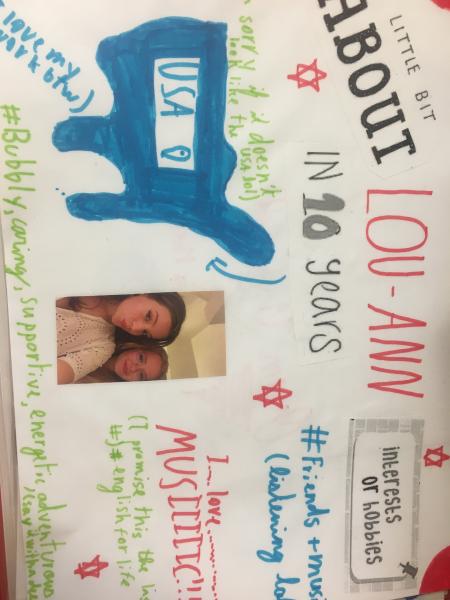 LITTLE BIT
ABOUT
LOU-ANN
interests
or hobbies
IN 10 years
sorry if i doesn't
look like the USA lol)
USA
love my
work btw)
#Friends +
(listening
I... love
(I promise this the
#)# english for life
#Bubbly, caring, supportive, energetic, adventurous